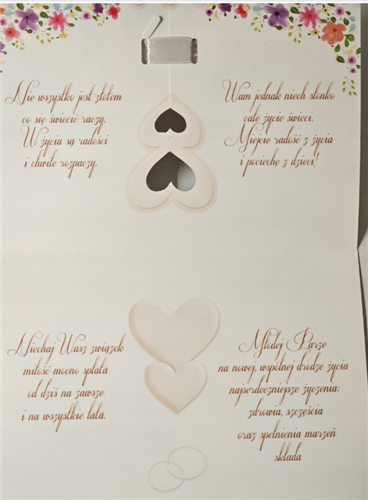 Nie wszystko jest złotem
co się świecić raczy.
W życiu są radości
i chwile rozpaczy.
Wam jednak niech słonko
całe życie świeci.
Miejcie radość z życia
i pociechę z dzieci!
Niechaj Wasz związek
miłość mocno splata
od dziś na zawsze
i na wszystkie lata.
Młodej Parze
na nowej, wspólnej drodze życia
najserdeczniejsze życzenia:
zdrowia, szczęścia
oraz spełnienia marzeń
składa